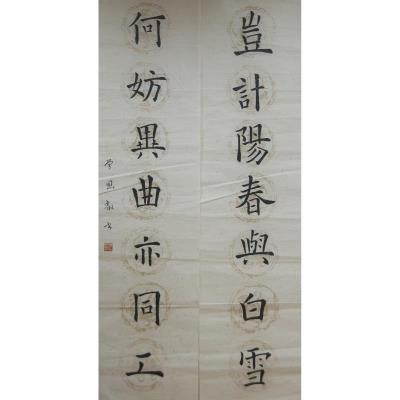 豈計陽春與白雪
何妨異曲亦同工